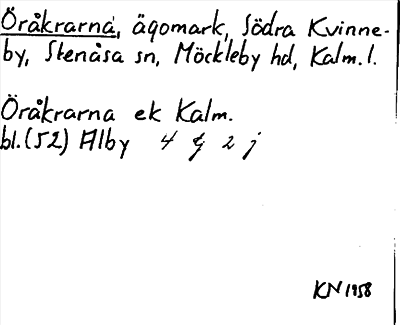 Öråkrarna, ägomark, Södra Kvinne-
by, Stenåsa sn, Möckleby hd, Kalm.l.
Öråkrarna ek Kalm.
bl.(52) Alby 4 g 2 j
KN 1958